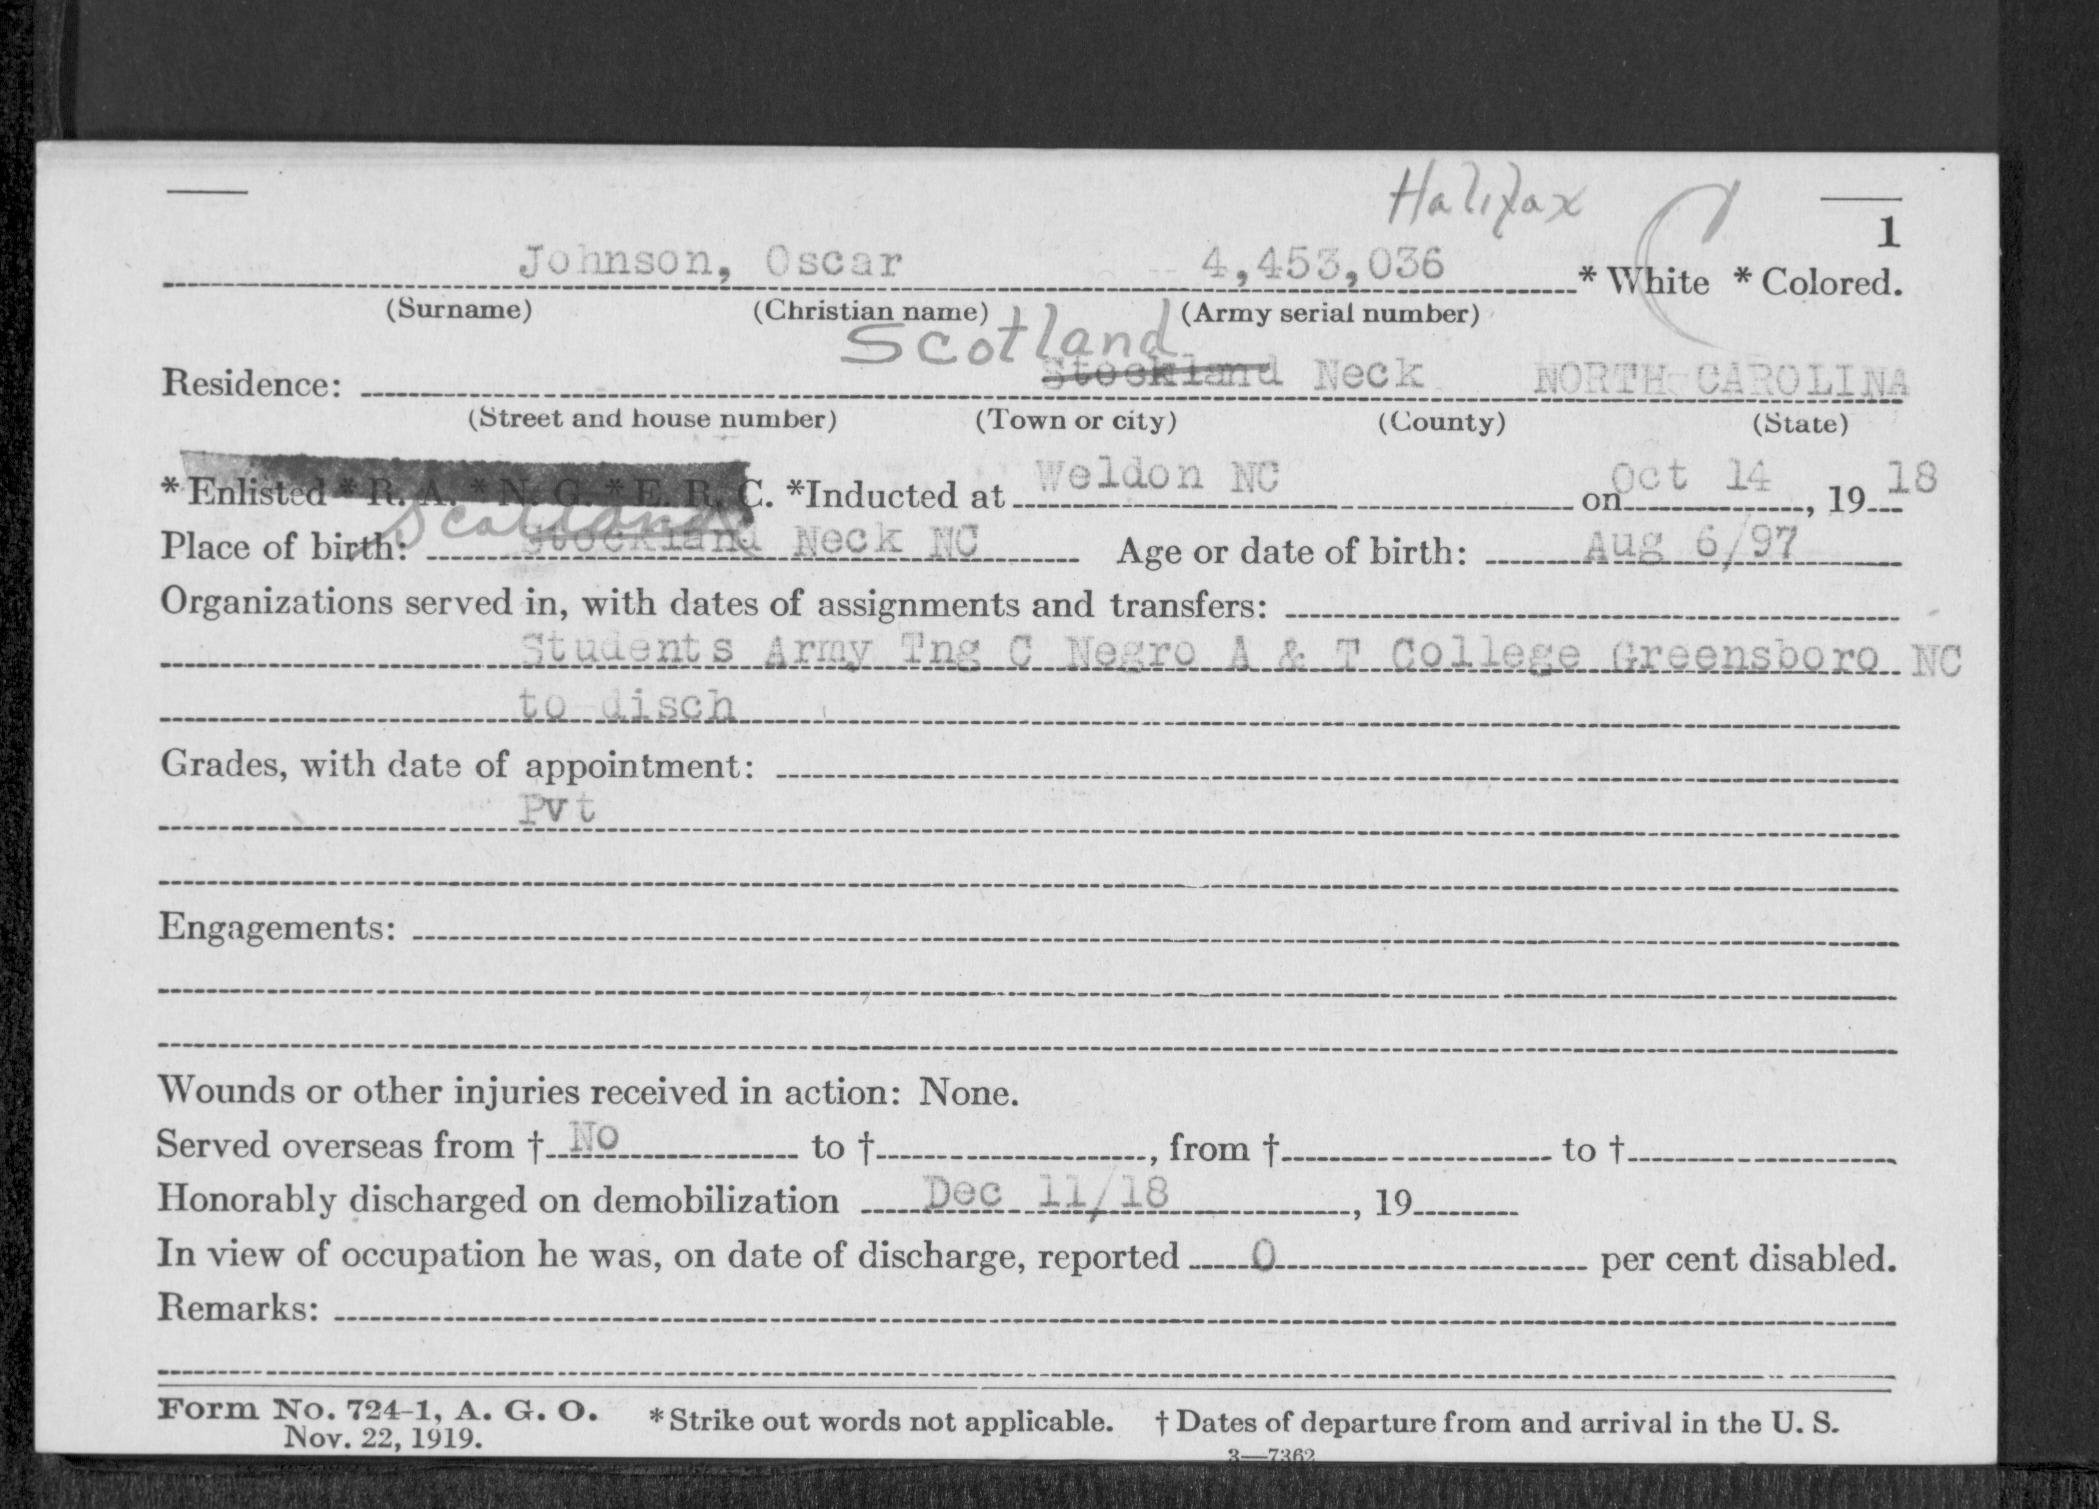 Halifax
1
Johnson, Oscar 4,453,036 * White * Colored.
(Surname) (Christian name) (Army serial number)
Scotland
Residence: Stockland Neck NORTH CAROLINA
(Street and house number) (Town or city) (County) (State)
* Enlisted * R. A. * N. G. * E. R. C. *Inducted at Weldon NC on Oct 14, 19 18
Scotland
Place of birth: Stockland Neck NC Age or date of birth: Aug 6/97
Organizations served in, with dates of assignments and transfers:
Students Army Tng C Negro A & T College Greensboro NC
to disch
Grades, with date of appointment:
Pvt
Engagements:
Wounds or other injuries received in action: None.
Served overseas from † No to †, from † to †
Honorably discharged on demobilization Dec 11/18, 19
In view of occupation he was, on date of discharge, reported 0 per cent disabled.
Remarks:
Form No. 724-1, A. G. O. * Strike out words not applicable. † Dates of departure from and arrival in the U. S.
Nov. 22, 1919.
3—7362